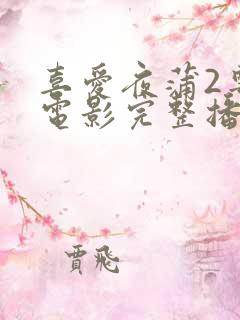 喜愛夜蒲2
電影完整播
賈飛